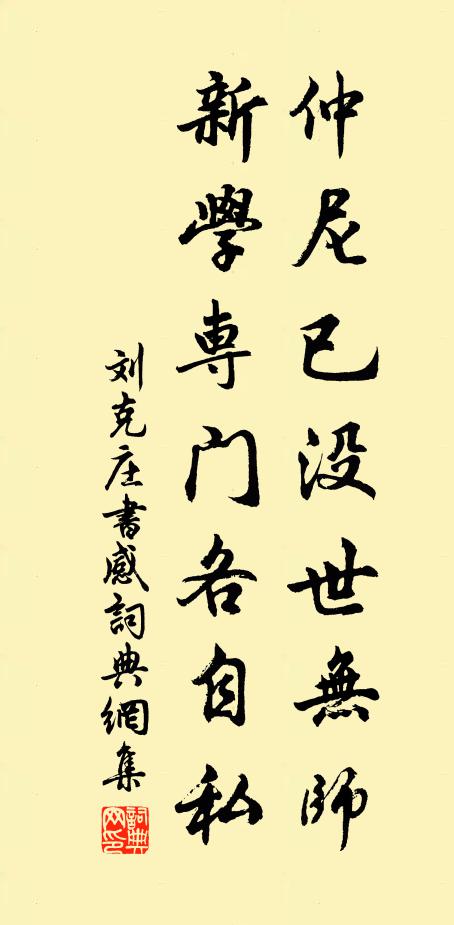 仲尼已没世無師
新學専门各自私
刘克庄書感詞典網集
詞典网印